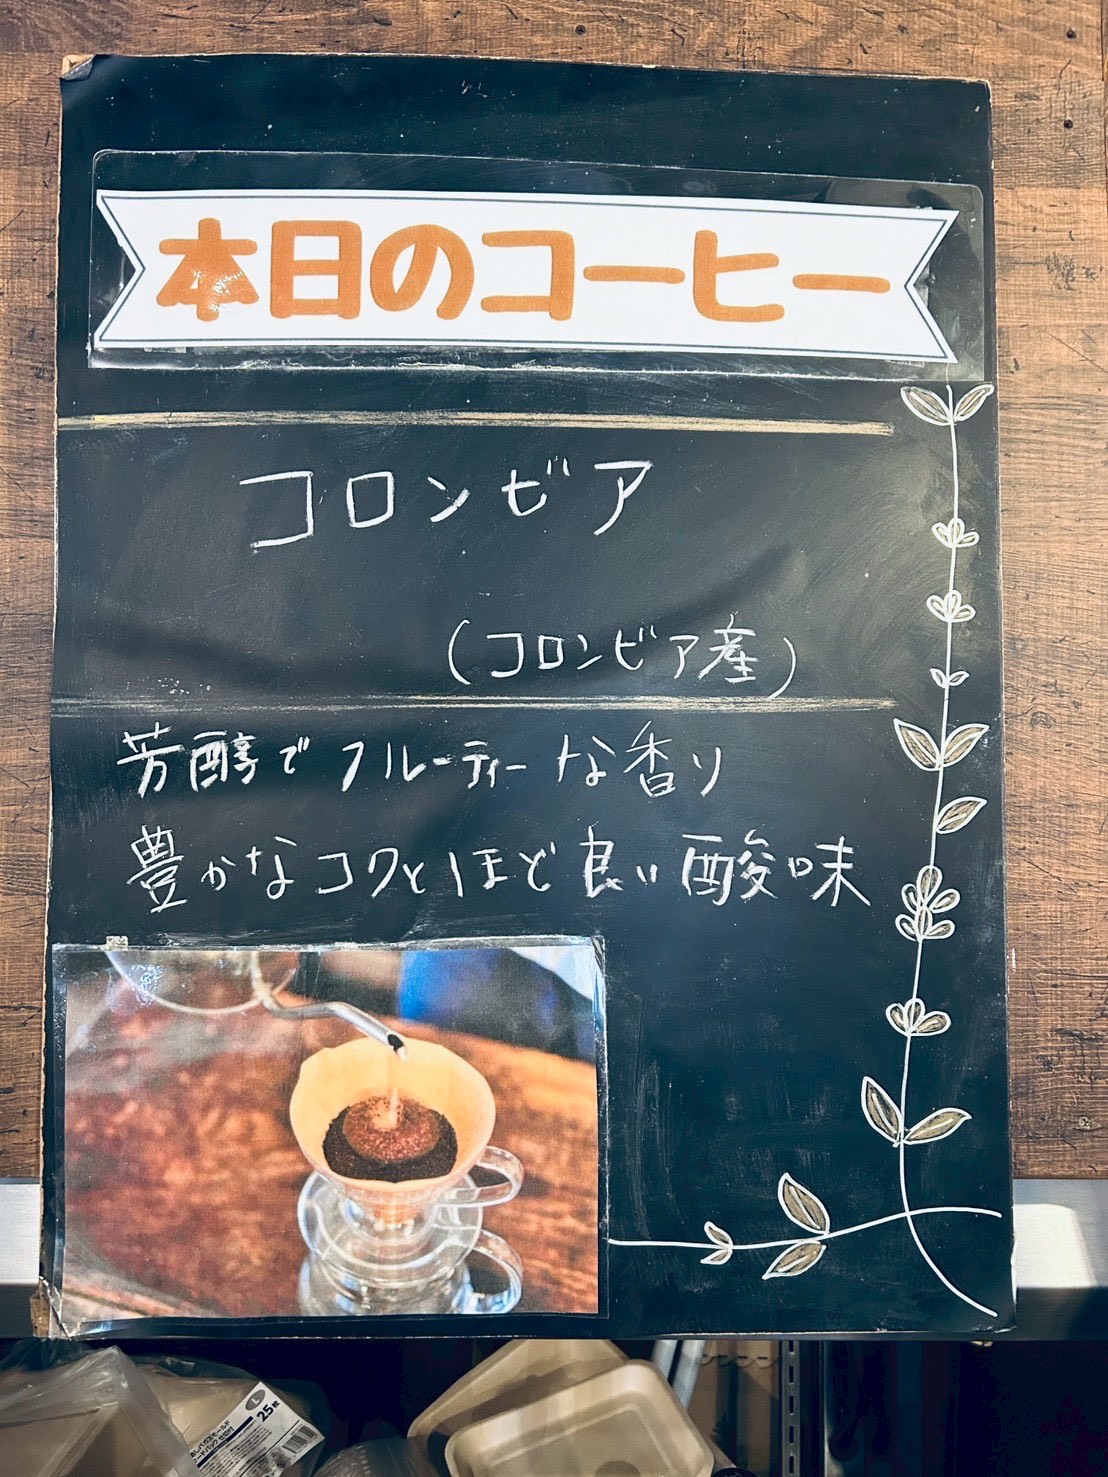 本日のコーヒー
コロンビア
(コロンビア産)
芳醇でフルーティーな香り
豊かなコクとほど良い酸味
L
25枚